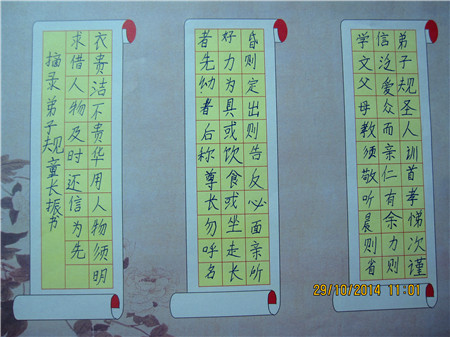 弟子规圣人训首孝悌次谨
信泛爱众而亲仁有余力则
学文父母教须敬听晨则省
昏则定出则告反必面亲所
好力为具或饮食或坐走长
者先幼者后称尊长勿呼名
衣贵洁不贵华用人物须明
求借人物及时还信为先
摘录弟子规童长振书
29/10/2014 11:01